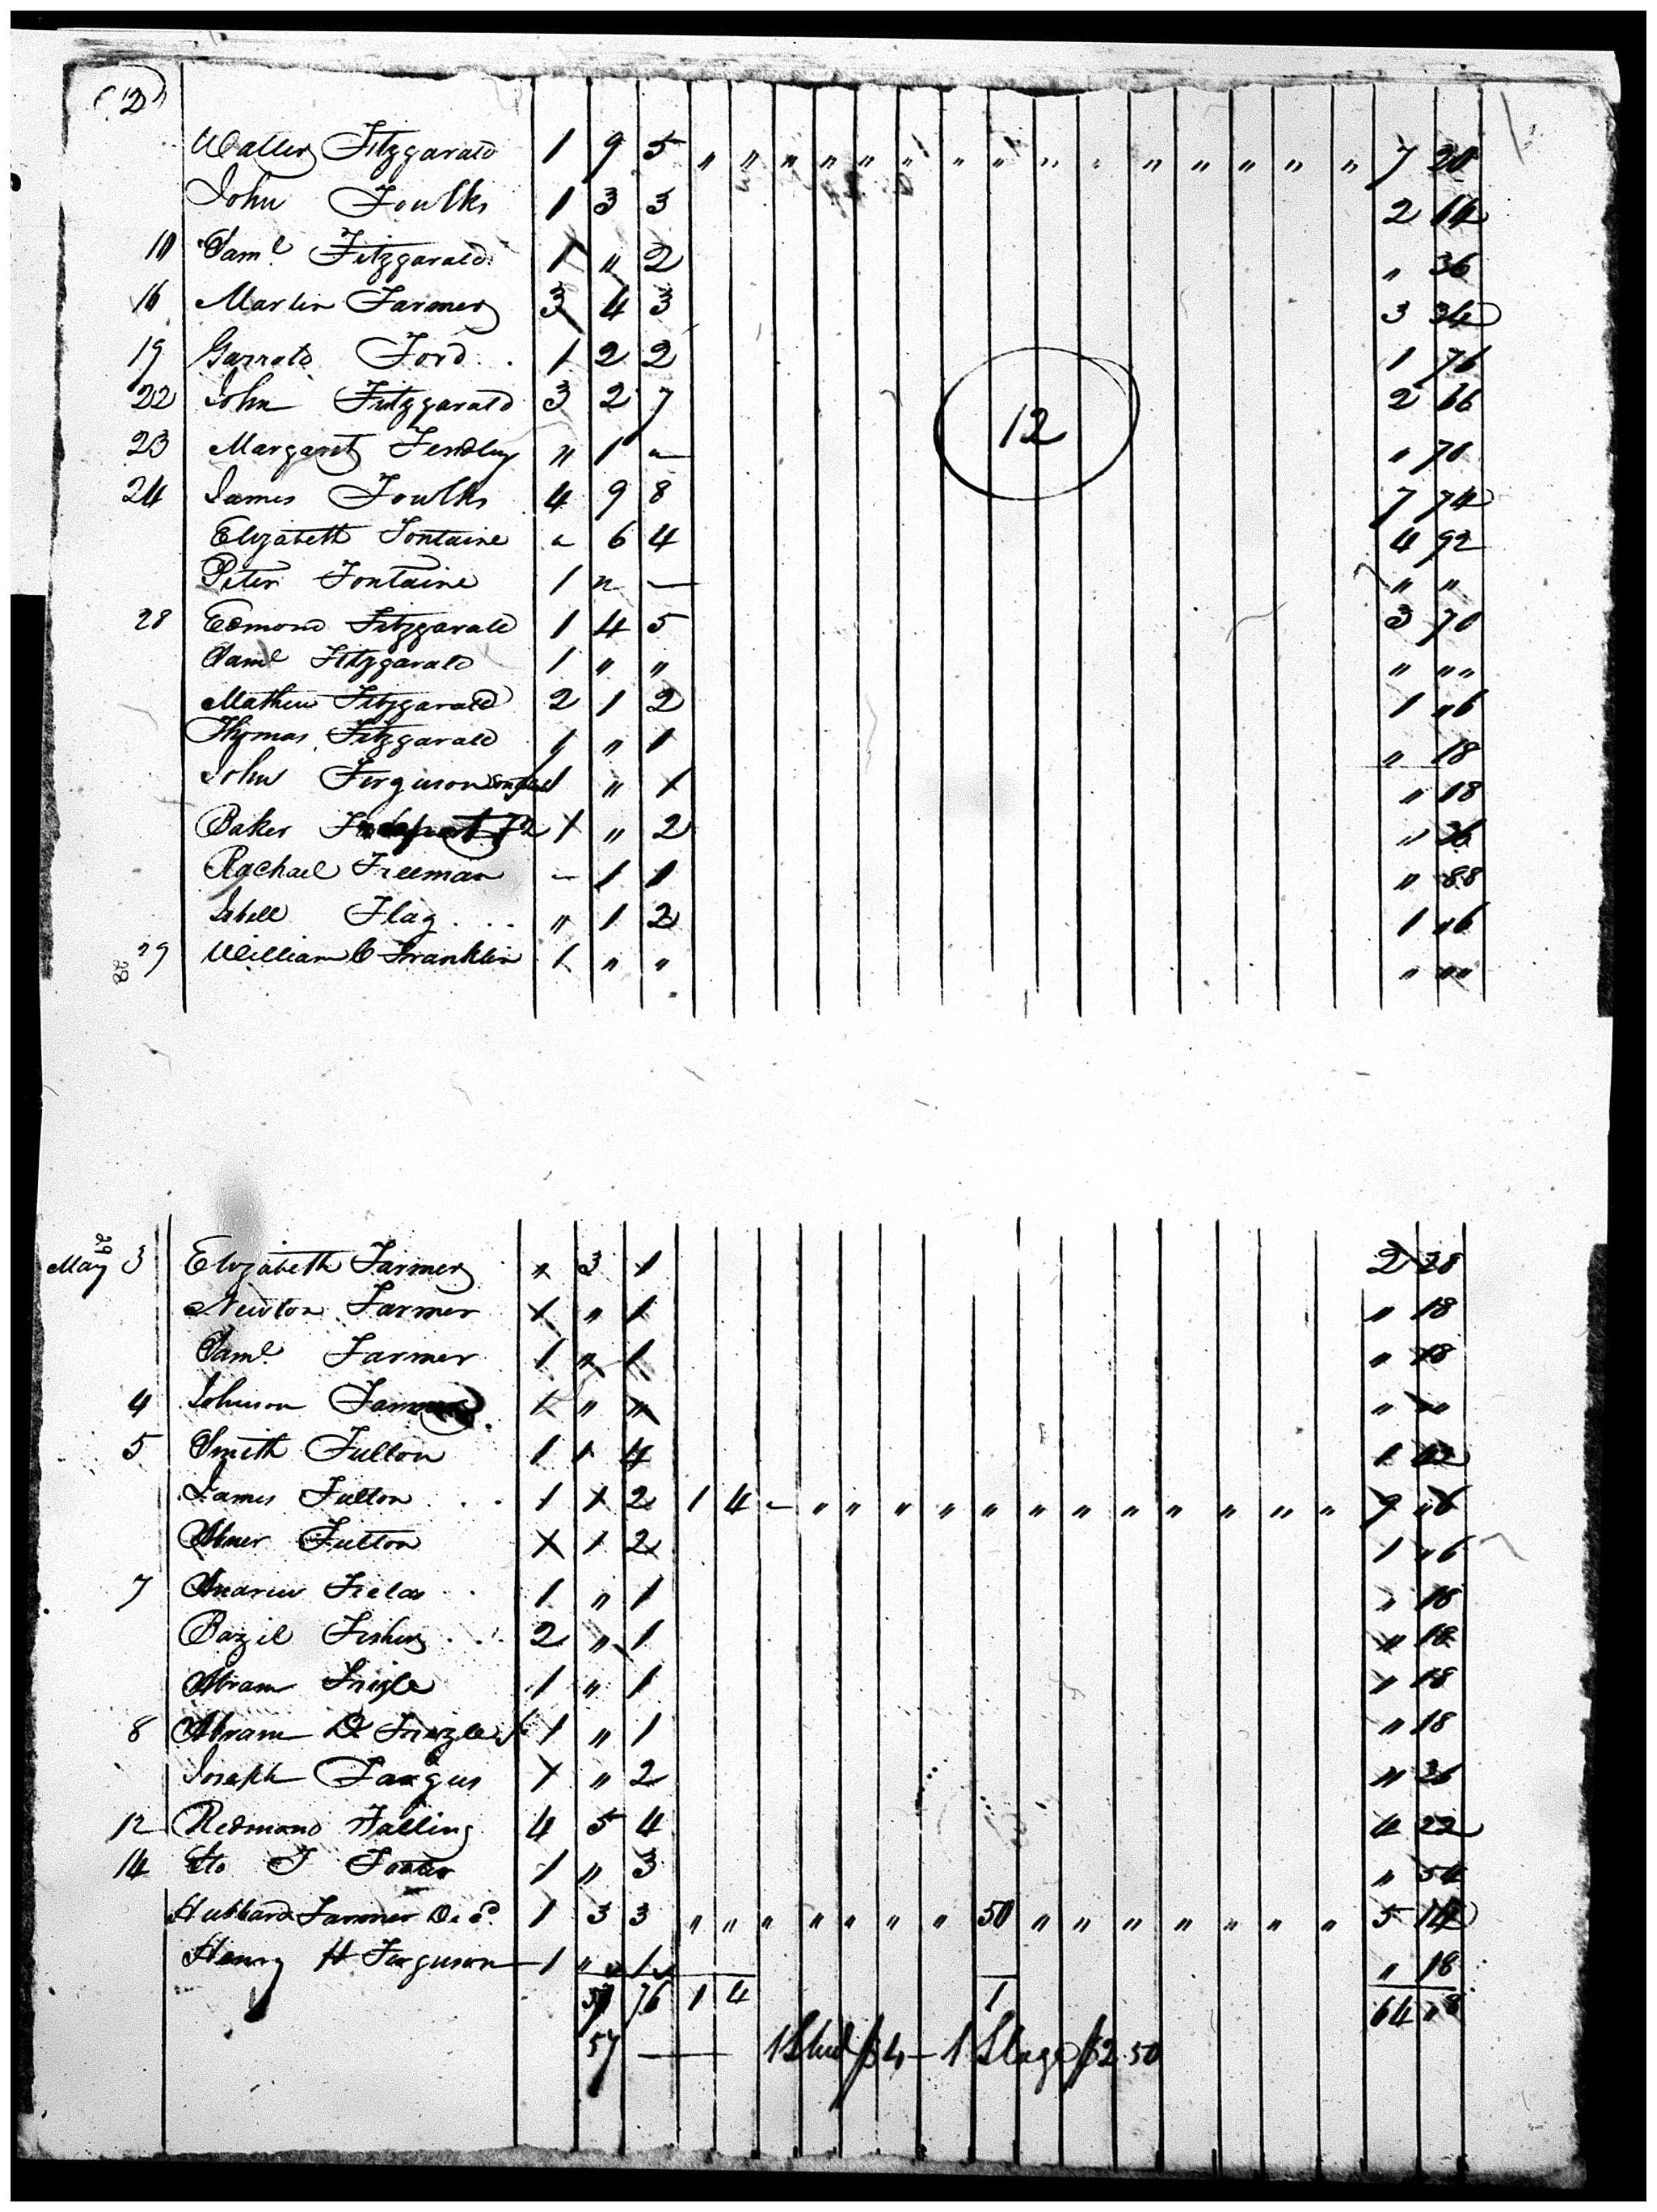 (12)
Waller Fitzgarald 1 9 5 " " " " " " " " " " " " " " " 7 20
John Foulks 1 3 3 2 14
10 Saml. Fitzgarald 1 " 2 " 36
16 Martin Farmer 3 4 3 3 34
19 Garrald Ford . 1 2 2 1 76
22 John Fitzgarald 3 2 7 2 66
23 Margaret Fendley " 1 — " 70
12
24 James Foulks 4 9 8 7 74
Elizabeth Fontaine " 6 4 4 92
Peter Fontaine 1 " — " "
28 Edmond Fitzgarald 1 4 5 3 70
Saml Fitzgarald 1 " " " " "
Mathew Fitzgarald 2 1 2 1 " 6
Thomas Fitzgarald 1 " 1 " 18
John Ferguson 1 " 1 " 18
Baker 1 " 2 " 36
Rachael Freeman — 1 1 " 88
Isbell Flag . . . " 1 2 1 " 6
29 William C Franklin 1 " " " " "
28
29
May 3 Elizabeth Farmer " 3 1 2 28
Newton Farmer 1 " 1 " 18
Saml. Farmer 1 " 1 " 18
4 Johnson Farmer 1 " " " " "
5 Smith Fulton 1 1 4 1 42
James Fulton . . 1 1 2 1 4 — " " " " " " " " " " " " 9 " 6
Abner Fulton 1 1 2 1 " 6
7 Andrew Fields . 1 " 1 " 18
Bazil Fisher . . . 2 " 1 " 18
Abram Frizle 1 " 1 " 18
8 Abram D Frizle 1 " 1 " 18
Joseph Fargus 1 " 2 " 36
12 Redmond Falling 4 5 4 4 22
14 Geo J Foster 1 " 3 " 54
Hubbard Farmer 1 3 3 " " " " " " " 50 " " " " " " " 5 14
Henry H Ferguson 1 " 1 " 18
57 76 1 4 1 64 " 8
57 — 1 Stud $4 — 1 Stage $2.50